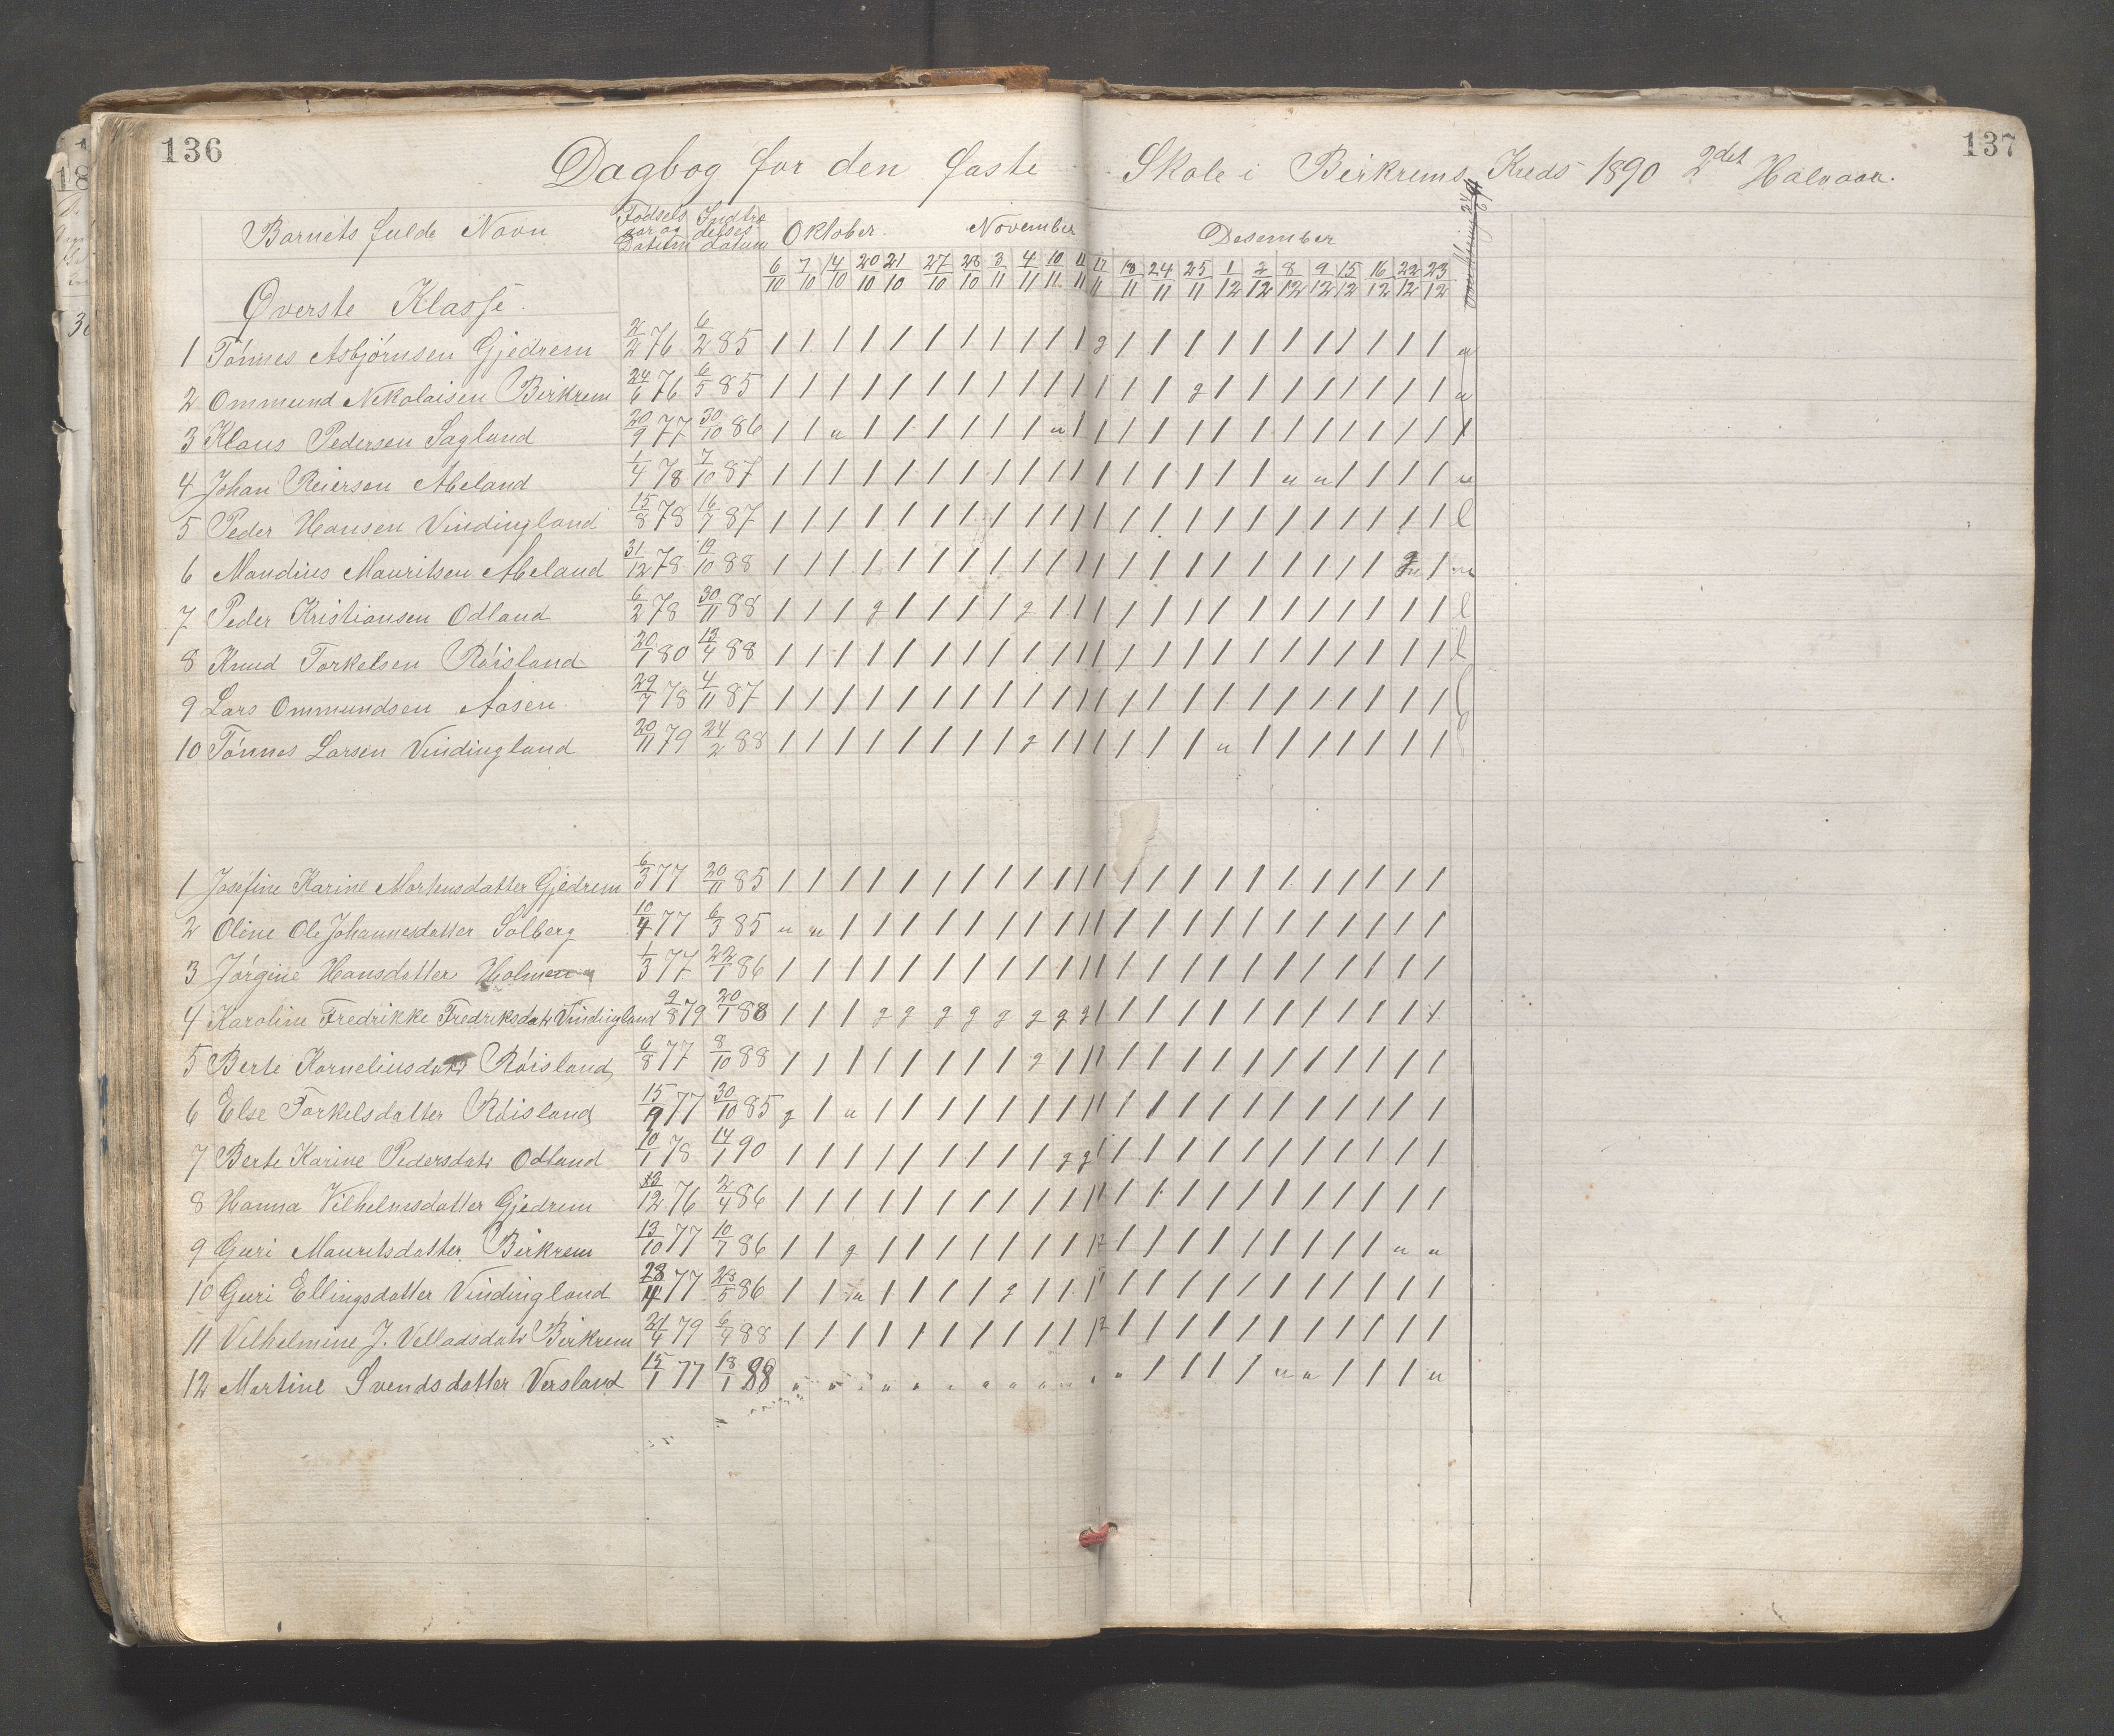 136
137
Dagbog for den faste Skole i Birkrems Kreds 1890 2det Halvaar.
Barnets fulde Navn Fødsels aar og Datum Indtrædelses datum Oktober. November Desember
6/10 7/10 14/10 20/10 21/10 27/10 28/10 3/11 4/11 10/11 11/11 17/11 18/11 24/11 25/11 1/12 2/12 8/12 9/12 15/12 16/12 22/12 23/12
Øverste Klasse.
1 Tønnes Asbjørnsen Gjedrem 2/2 76 6/2 85 / / / / / / / / / / / g / / / / / / / / / / / u
2 Ommund Nikolaisen Birkrem 24/6 76 6/5 85 / / / / / / / / / / / / / / g / / / / / / / / u
3 Klaus Pedersen Sagland 20/9 77 30/10 86 / / u / / / / / / u / / / / / / / / / / / / / /
4 Johan Reiersen Abeland 1/4 78 7/10 87 / / / / / / / / / / / / / / / / / u u / / / / u
5 Peder Hansen Vindingland 15/8 78 16/7 87 / / / / / / / / / / / / / / / / / / / / / / / l
6 Mandius Mauritsen Abeland 31/12 78 19/10 88 / / / / / / / / / / / / / / / / / / / / / u / u
7 Peder Kristiansen Odland 6/2 78 30/11 88 / / / g / / / / g / / / / / / / / / / / / / / l
8 Knud Torkelsen Røisland 20/1 80 13/4 88 / / / / / / / / / / / / / / / / / / / / / / / l
9 Lars Ommundsen Aasen 29/7 78 4/11 87 / / / / / / / / / / / / / / / / / / / / / / / l
10 Tønnes Larsen Vindingland 20/11 79 24/2 88 / / / / / / / / g / / / / / / u / / / / / / /
1 Josefine Karine Mortensdatter Gjedrem 6/3 77 20/11 85 / / / / / / / / / / / / / / / / / / / / / / /
2 Oline Ole Johannesdatter Solberg 10/4 77 6/3 85 u u / / / / / / / / / / / / / / / / / / / / /
3 Jørgine Hansdatter Holmen 1/3 77 22/1 86 / / / / / / / / / / / / / / / / / / / / / / /
4 Karoline Fredrikke Fredriksdatr Vindingland 9/8 79 20/1 88 / / / g g g g g g g g / / / / / / / / / / / /
5 Berte Korneliusdatr Røisland 6/8 77 8/10 88 / / / / / / / / g / / / / / / / / / / / / / /
6 Else Torkelsdatter Røisland 15/9 77 30/10 85 g / u / / / / / / / / / / / / / / / / / / / /
7 Berte Karine Pedersdatr Odland 10/1 78 14/1 90 / / / / / / / / / g g / / / / / / / / / / / /
8 Hanna Vilhelmsdatter Gjedrem 13/12 76 2/4 86 / / / / / / / / / / / / / / / / / / / / / / /
9 Guri Mauritsdatter Birkrem 13/10 77 10/7 86 / / g / / / / / / / / g / / / / / / / / / u u
10 Guri Ellingsdatter Vindingland 28/4 77 28/5 86 / / u / / / / g / / / / / / / / / / / / / / /
11 Vilhelmine J. Velladsdatr Birkrem 21/4 79 6/9 88 / / / / / / / / / / / g / / / / / / / / / / /
12 Martine Svendsdatter Versland 15/1 77 18/1 88 u u u u u u u u u u u u / / / / u u / / / u